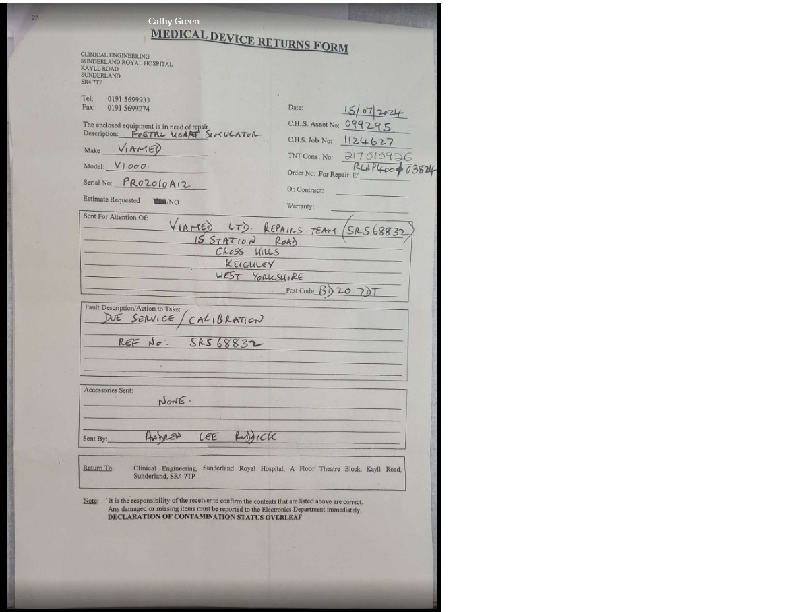 Cathy Green
MEDICAL DEVICE RETURNS FORM
CLINICAL ENGINEERING
SUNDERLAND ROYAL HOSPITAL
KAYLL ROAD
SUNDERLAND
SR4 7TP
Tel: 0191 5699233
Fax: 0191 5699274
The enclosed equipment is in need of repair.
Description: FOETAL HEART SIMULATOR
Make VIAMED
Model: V1000
Serial No: PR02010A12
Estimate Requested /NO
Date: 15/07/2024
C.H.S. Asset No: 099295
C.H.S. Job No: 1124627
TNT Cons. No: 217010926
Order No. For Repair
On Contract:
Warranty:
Sent For Attention Of: VIAMED LTD. REPAIRS TEAM (SRS68832)
15 STATION ROAD
CROSS HILLS
KEIGHLEY
WEST YORKSHIRE
Post Code BD20 7DT
Fault Description/Action to Take:
DUE SERVICE/CALIBRATION
REF No: SRS68832
Accessories Sent:
NONE.
Sent By: ANDREW LEE
Return To: Clinical Engineering, Sunderland Royal Hospital, A Floor Theatre Block, Kayll Road,
Sunderland, SR4 7TP
Note: It is the responsibility of the receiver to confirm the contents that are listed above are correct.
Any damaged or missing items must be reported to the Electronics Department immediately.
DECLARATION OF CONTAMINATION STATUS OVERLEAF